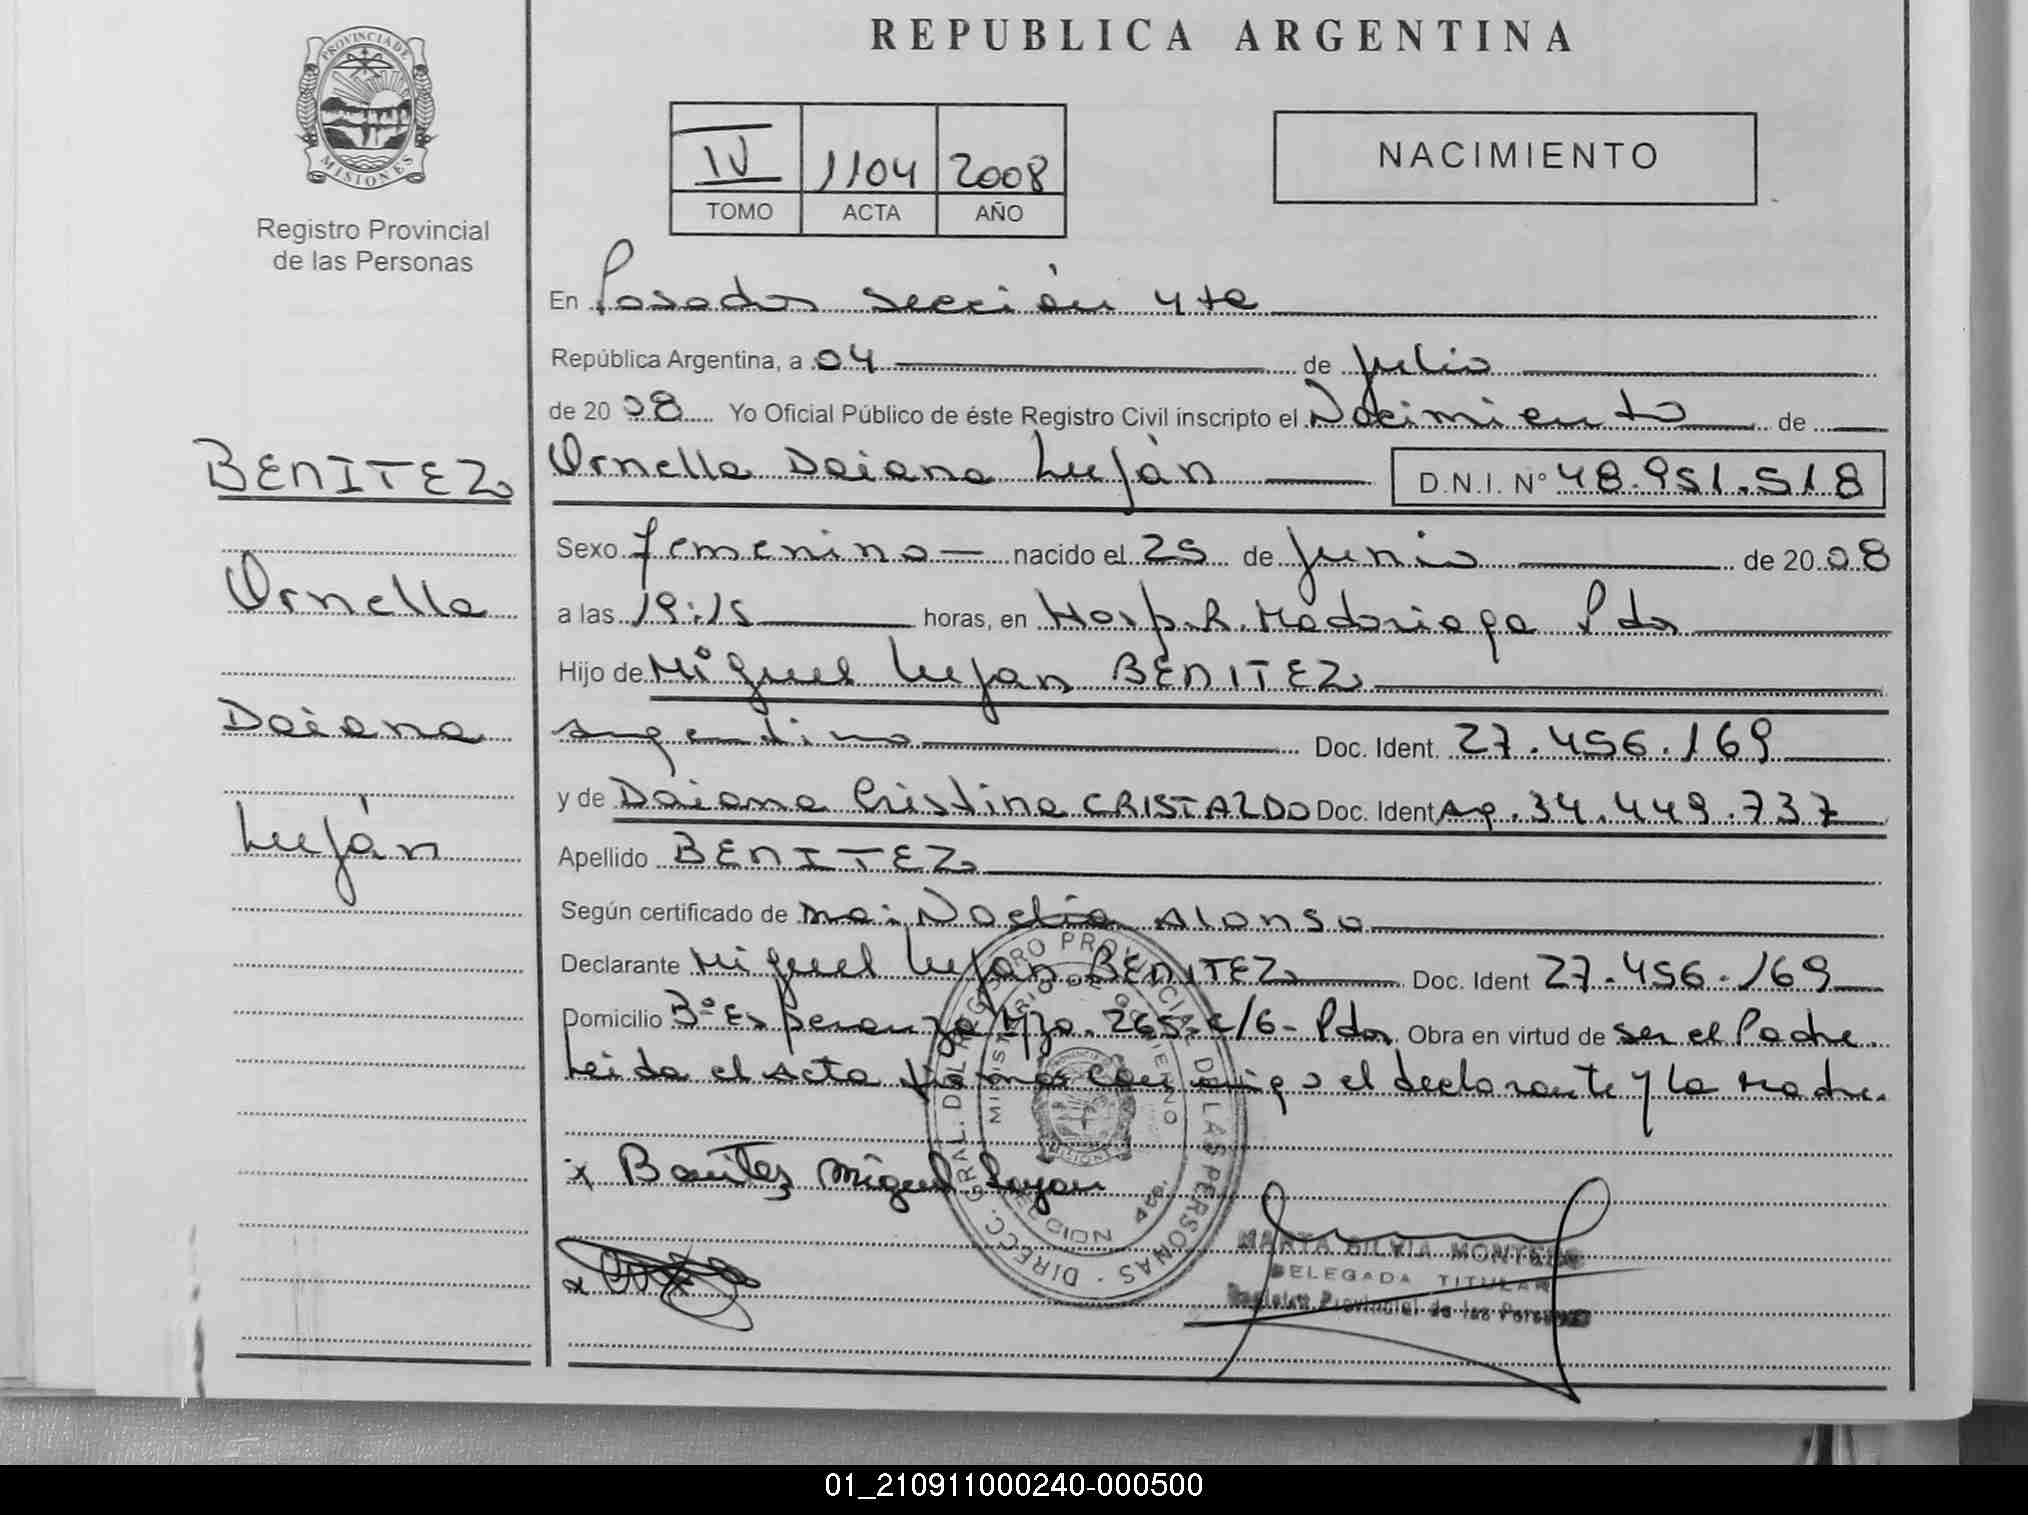 REPUBLICA ARGENTINA
PROVINCIA DE
MISIONES
Registro Provincial
de las Personas
IV 1104 2008
TOMO ACTA AÑO
NACIMIENTO
En Posadas sección 4ta
República Argentina, a 04 de julio
de 2008 Yo Oficial Público de éste Registro Civil inscripto el Nacimiento de
BENITEZ
Ornella Daiana Luján D.N.I. N° 48.951.518
Sexo femenino nacido el 25 de Junio de 2008
Ornella
a las 19:15 horas, en Hosp. R. Madariaga Pdas
Hijo de Miguel Lujan BENITEZ
Daiana
argentino Doc. Ident. 27.456.169
y de Daiana Cristina CRISTALDO Doc. Ident Ag. 34.449.737
Luján
Apellido BENITEZ
Según certificado de ma: Noelia Alonso
Declarante Miguel Lujan BENITEZ Doc. Ident 27.456.169
Domicilio B° Esperanza Mza. 265 c/6 - Pdas Obra en virtud de ser el Padre.
Leida el Acta firman conmigo el declarante y la Madre.
x Benitez Miguel Lujan
DIRECC. GRAL. DEL REGISTRO PROVINCIAL DE LAS PERSONAS
MINISTERIO DE GOBIERNO
MARTA SILVIA
DELEGADA TITULAR
Registro Provincial de las Personas
01_210911000240-000500